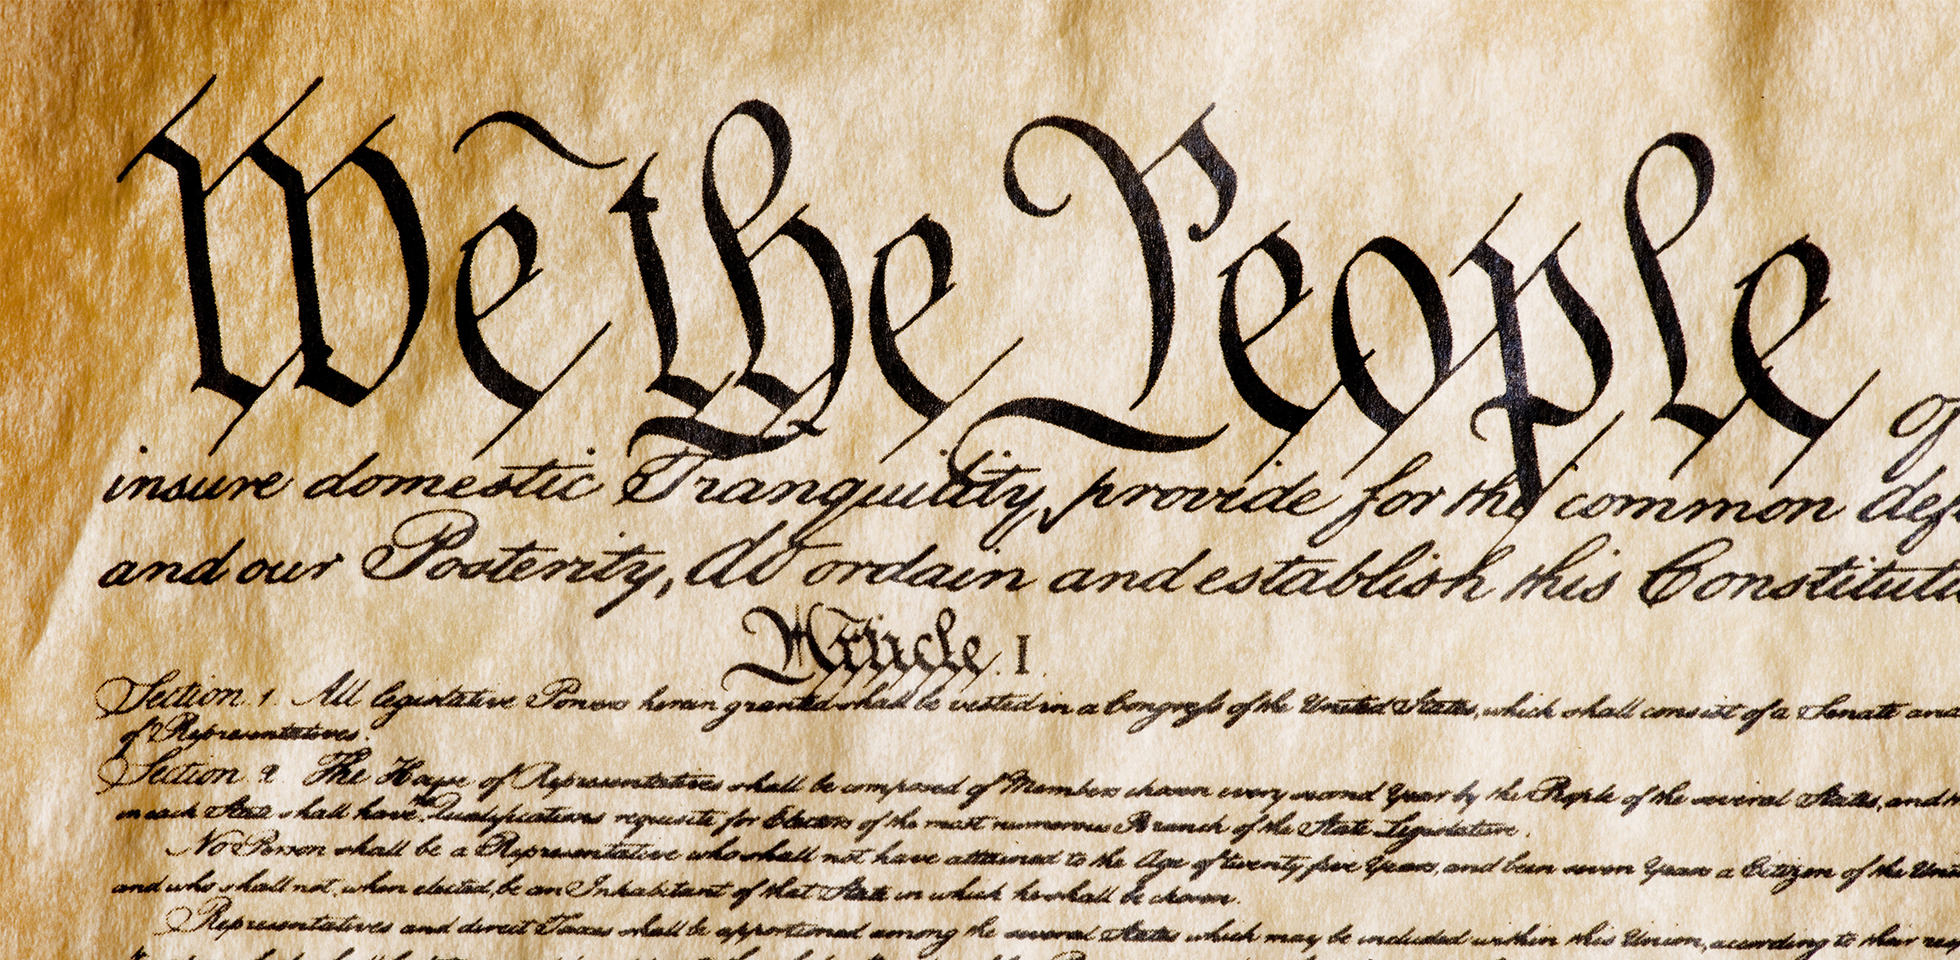 We the People of
insure domestic Tranquility, provide for the common def
and our Posterity, do ordain and establish this Constituti
Article. I.
Section. 1. All legislative Powers herein granted shall be vested in a Congress of the United States, which shall consist of a Senate and
of Representatives.
Section. 2. The House of Representatives shall be composed of Members chosen every second Year by the People of the several States, and
in each State shall have the Qualifications requisite for Electors of the most numerous Branch of the State Legislature.
No Person shall be a Representative who shall not have attained to the Age of twenty five Years, and been seven Years a Citizen of the Unit
and who shall not, when elected, be an Inhabitant of that State in which he shall be chosen.
Representatives and direct Taxes shall be apportioned among the several States which may be included within this Union, according to their resp